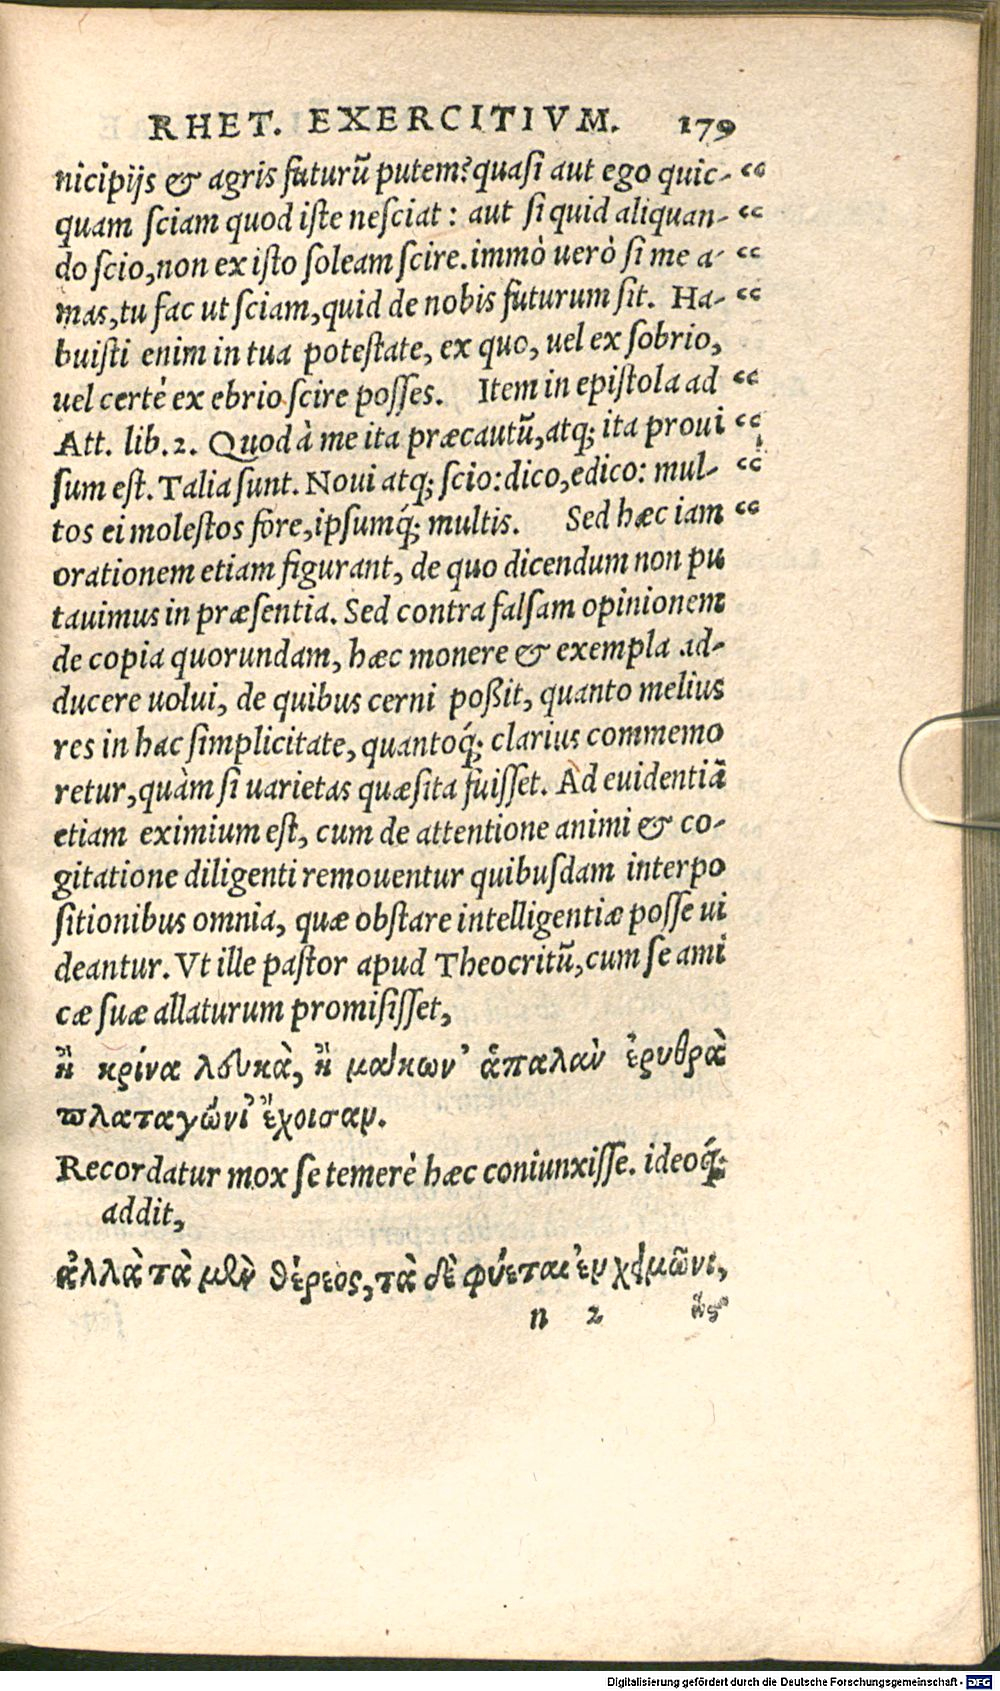 RHET. EXERCITIVM. 179
nicipijs & agris futurũ putem? quasi aut ego quic- “
quam sciam quod iste nesciat : aut si quid aliquan- “
do scio, non ex isto soleam scire. immò uerò si me a- “
mas, tu fac ut sciam, quid de nobis futurum sit. Ha- “
buisti enim in tua potestate, ex quo, uel ex sobrio,
uel certè ex ebrio scire posses. Item in epistola ad “
Att. lib. 2. Quod à me ita præcautũ, atq; ita proui “
sum est. Talia sunt. Noui atq; scio: dico, edico: mul- “
tos ei molestos fore, ipsumq́; multis. Sed hæc iam “
orationem etiam figurant, de quo dicendum non pu
tauimus in præsentia. Sed contra falsam opinionem
de copia quorundam, hæc monere & exempla ad-
ducere uolui, de quibus cerni poßit, quanto melius
res in hac simplicitate, quantoq́; clarius commemo
retur, quàm si uarietas quæsita fuisset. Ad euidentiã
etiam eximium est, cum de attentione animi & co-
gitatione diligenti remouentur quibusdam interpo
sitionibus omnia, quæ obstare intelligentiæ posse ui
deantur. Vt ille pastor apud Theocritũ, cum se ami
cæ suæ allaturum promisisset,
ἢ κρίνα λευκὰ, ἢ μάκων’ ἁπαλὰν ἐρυθρὰ
πλαταγώνι’ ἔχοισαν.
Recordatur mox se temerè hæc coniunxisse. ideoq́;
addit,
ἀλλὰ τὰ μὲν θέρεος, τὰ δὲ φύεται ἐν χειμῶνι,
n 2 ὥς’
Digitalisierung gefördert durch die Deutsche Forschungsgemeinschaft - DFG